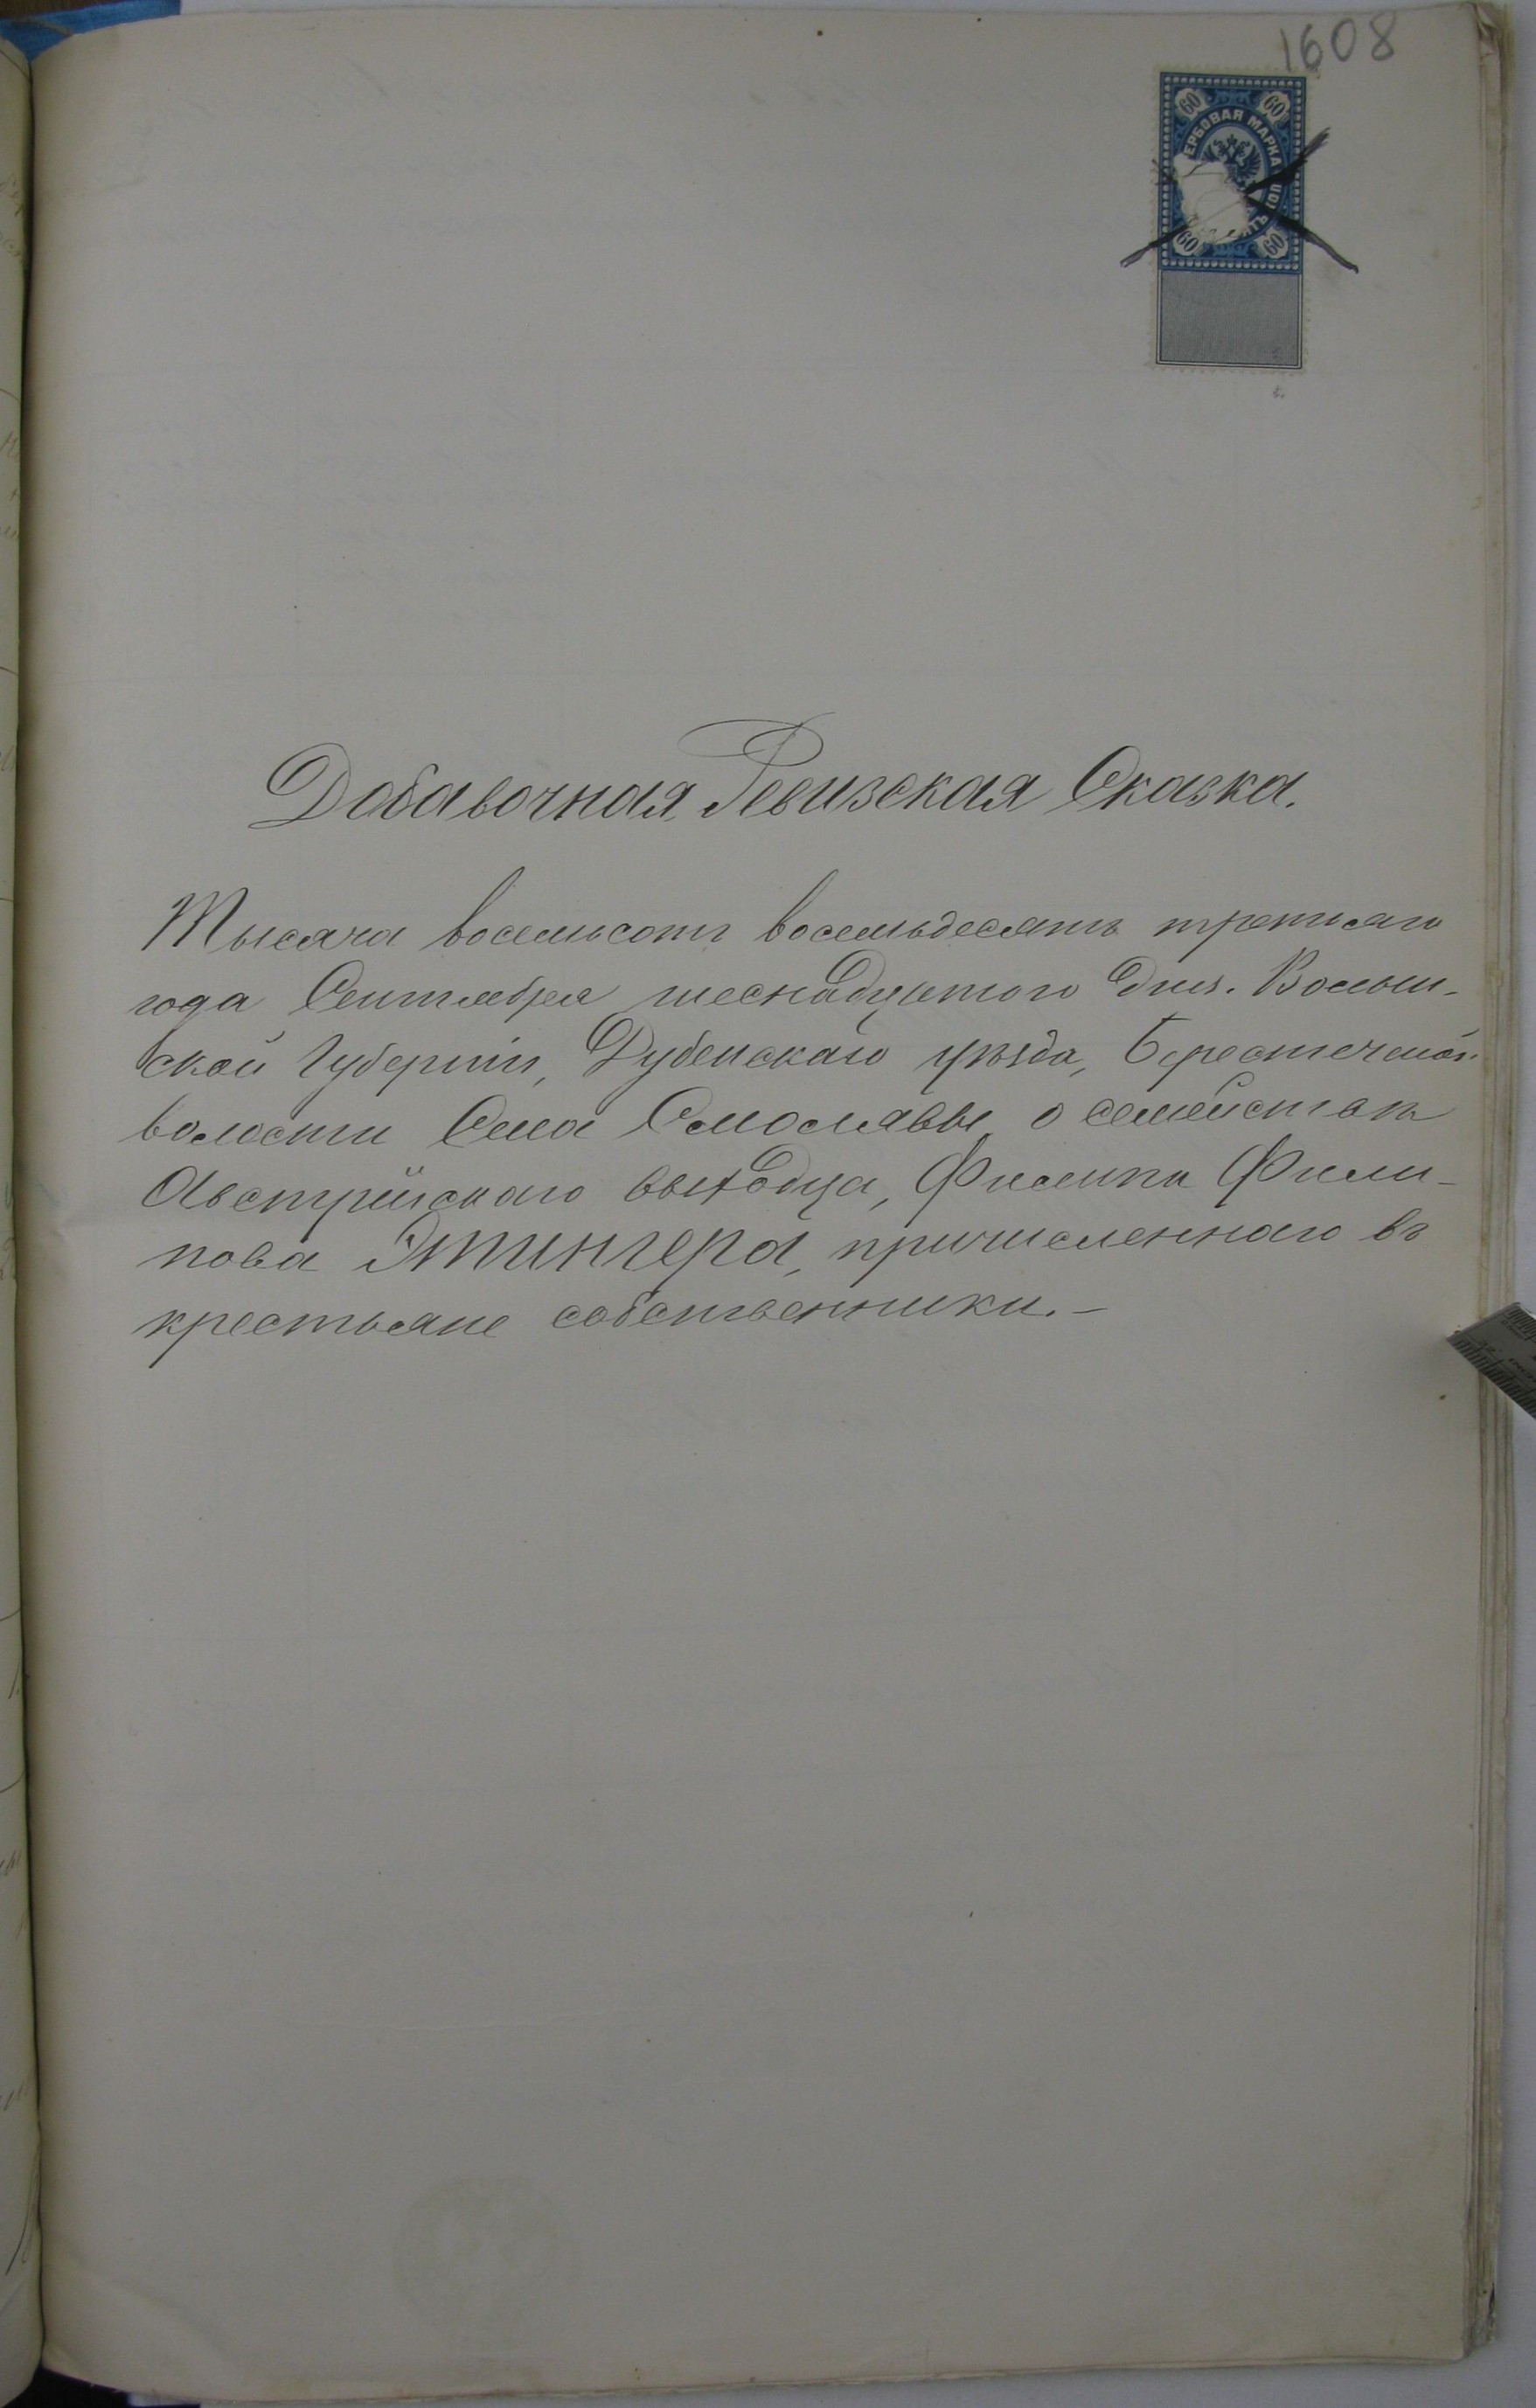 1608
60 60
ЕРБОВАЯ МАРКА
60 60
Добавочная Ревизская Сказка.
Тысяча восемьсотъ восемьдесятъ третьяго
года Сентября шеснадцатого дня. Волын-
ской Губерніи, Дубенскаго уѣзда, Берестечской
волости Села Смолявы о семействѣ
Австрійскаго выходца, Филипа Фили-
пова Этингера, причисленнаго въ
крестьяне собственники.-